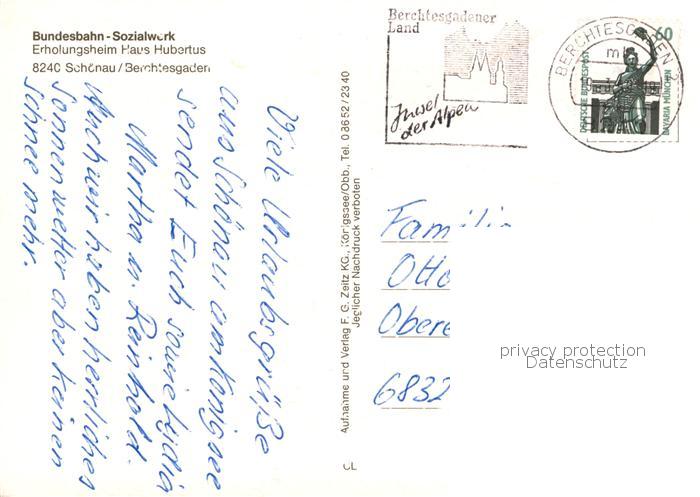 Bundesbahn-Sozialwerk
Erholungsheim Haus Hubertus
8240 Schönau/Berchtesgaden
Viele Urlaubsgrüße
aus Schönau am Königsee
sendet Euch sowie Lydia
Martha u. Reinhold.
Auch wir haben herrliches
Sonnenwetter aber keinen
Schnee mehr.
Aufnahme und Verlag F. G. Zeitz KG., Königssee/Obb., Tel. 0 86 52 / 23 40
Jeglicher Nachdruck verboten
CL
Berchtesgadener
Land
Insel
der Alpen
BERCHTESGADEN 2
60
DEUTSCHE BUNDESPOST
BAVARIA MÜNCHEN
Famili
Otto
Obere
6832
privacy protection
Datenschutz